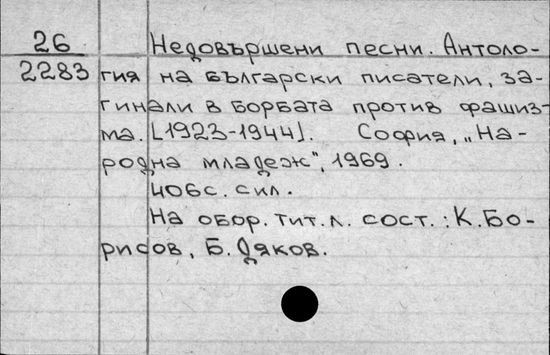 26
2283
Недовършени песни. Антоло-
гия на български писатели, за-
гинали в борбата против фашиз-
ма. [1923-1944]. София, „На-
родна младеж", 1969.
406с. сил.
На обор. тит. л. сост.: К. Бо-
рисов, Б. Дяков.